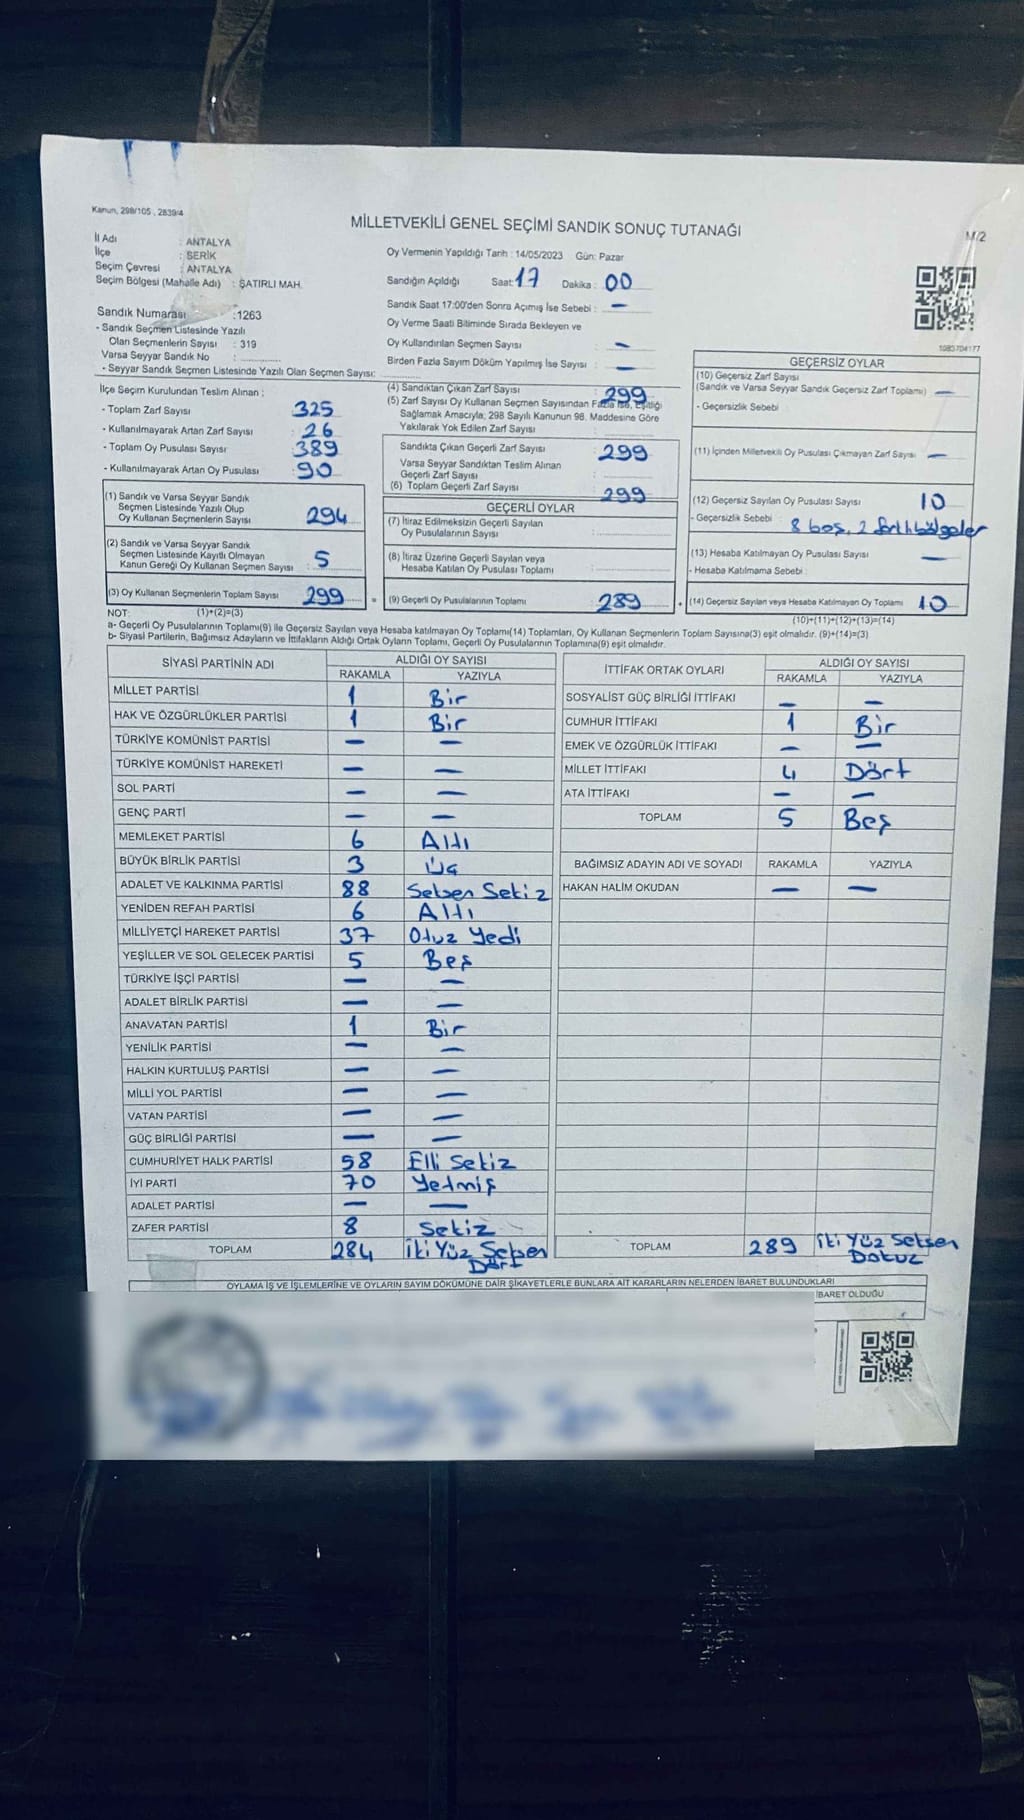 Kanun, 298/105 , 2839/4
MİLLETVEKİLİ GENEL SEÇİMİ SANDIK SONUÇ TUTANAĞI
M/2
İl Adı : ANTALYA
İlçe : SERİK
Seçim Çevresi : ANTALYA
Seçim Bölgesi (Mahalle Adı) : ŞATIRLI MAH.
Sandık Numarası : 1263
- Sandık Seçmen Listesinde Yazılı
Olan Seçmenlerin Sayısı : 319
Varsa Seyyar Sandık No :
- Seyyar Sandık Seçmen Listesinde Yazılı Olan Seçmen Sayısı:
Oy Vermenin Yapıldığı Tarih : 14/05/2023 Gün: Pazar
Sandığın Açıldığı Saat: 17 Dakika : 00
Sandık Saat 17:00'den Sonra Açımış İse Sebebi : —
Oy Verme Saati Bitiminde Sırada Bekleyen ve
Oy Kullandırılan Seçmen Sayısı : —
Birden Fazla Sayım Döküm Yapılmış İse Sayısı : —
1083704177
İlçe Seçim Kurulundan Teslim Alınan ;
- Toplam Zarf Sayısı 325
- Kullanılmayarak Artan Zarf Sayısı : 26
- Toplam Oy Pusulası Sayısı : 389
- Kullanılmayarak Artan Oy Pusulası : 90
(1) Sandık ve Varsa Seyyar Sandık
Seçmen Listesinde Yazılı Olup
Oy Kullanan Seçmenlerin Sayısı : 294
(2) Sandık ve Varsa Seyyar Sandık
Seçmen Listesinde Kayıtlı Olmayan
Kanun Gereği Oy Kullanan Seçmen Sayısı : 5
(3) Oy Kullanan Seçmenlerin Toplam Sayısı : 299 =
(4) Sandıktan Çıkan Zarf Sayısı : 299
(5) Zarf Sayısı Oy Kullanan Seçmen Sayısından Fazla İse, Eşitliği
Sağlamak Amacıyla; 298 Sayılı Kanunun 98. Maddesine Göre
Yakılarak Yok Edilen Zarf Sayısı :
Sandıkta Çıkan Geçerli Zarf Sayısı : 299
Varsa Seyyar Sandıktan Teslim Alınan
Geçerli Zarf Sayısı :
(6) Toplam Geçerli Zarf Sayısı : 299
GEÇERLİ OYLAR
(7) İtiraz Edilmeksizin Geçerli Sayılan
Oy Pusulalarının Sayısı :
(8) İtiraz Üzerine Geçerli Sayılan veya
Hesaba Katılan Oy Pusulası Toplamı :
(9) Geçerli Oy Pusulalarının Toplamı : 289 +
GEÇERSİZ OYLAR
(10) Geçersiz Zarf Sayısı
(Sandık ve Varsa Seyyar Sandık Geçersiz Zarf Toplamı) —
- Geçersizlik Sebebi :
(11) İçinden Milletvekili Oy Pusulası Çıkmayan Zarf Sayısı : —
(12) Geçersiz Sayılan Oy Pusulası Sayısı : 10
- Geçersizlik Sebebi : 8 boş, 2 farklı bölgeler
(13) Hesaba Katılmayan Oy Pusulası Sayısı : —
- Hesaba Katılmama Sebebi :
(14) Geçersiz Sayılan veya Hesaba Katılmayan Oy Toplamı : 10
NOT: (1)+(2)=(3)
(10)+(11)+(12)+(13)=(14)
a- Geçerli Oy Pusulalarının Toplamı(9) ile Geçersiz Sayılan veya Hesaba katılmayan Oy Toplamı(14) Toplamları, Oy Kullanan Seçmenlerin Toplam Sayısına(3) eşit olmalıdır. (9)+(14)=(3)
b- Siyasi Partilerin, Bağımsız Adayların ve İttifakların Aldığı Ortak Oyların Toplamı, Geçerli Oy Pusulalarının Toplamına(9) eşit olmalıdır.
SİYASİ PARTİNİN ADI ALDIĞI OY SAYISI
RAKAMLA YAZIYLA
MİLLET PARTİSİ 1 Bir
HAK VE ÖZGÜRLÜKLER PARTİSİ 1 Bir
TÜRKİYE KOMÜNİST PARTİSİ — —
TÜRKİYE KOMÜNİST HAREKETİ — —
SOL PARTİ — —
GENÇ PARTİ — —
MEMLEKET PARTİSİ 6 Altı
BÜYÜK BİRLİK PARTİSİ 3 Üç
ADALET VE KALKINMA PARTİSİ 88 Seksen Sekiz
YENİDEN REFAH PARTİSİ 6 Altı
MİLLİYETÇİ HAREKET PARTİSİ 37 Otuz Yedi
YEŞİLLER VE SOL GELECEK PARTİSİ 5 Beş
TÜRKİYE İŞÇİ PARTİSİ — —
ADALET BİRLİK PARTİSİ — —
ANAVATAN PARTİSİ 1 Bir
YENİLİK PARTİSİ — —
HALKIN KURTULUŞ PARTİSİ — —
MİLLİ YOL PARTİSİ — —
VATAN PARTİSİ — —
GÜÇ BİRLİĞİ PARTİSİ — —
CUMHURİYET HALK PARTİSİ 58 Elli Sekiz
İYİ PARTİ 70 Yetmiş
ADALET PARTİSİ — —
ZAFER PARTİSİ 8 Sekiz
TOPLAM 284 İki Yüz Seksen
Dört
İTTİFAK ORTAK OYLARI ALDIĞI OY SAYISI
RAKAMLA YAZIYLA
SOSYALİST GÜÇ BİRLİĞİ İTTİFAKI — —
CUMHUR İTTİFAKI 1 Bir
EMEK VE ÖZGÜRLÜK İTTİFAKI — —
MİLLET İTTİFAKI 4 Dört
ATA İTTİFAKI — —
TOPLAM 5 Beş
BAĞIMSIZ ADAYIN ADI VE SOYADI RAKAMLA YAZIYLA
HAKAN HALİM OKUDAN — —
TOPLAM 289 İki Yüz Seksen
Dokuz
OYLAMA İŞ VE İŞLEMLERİNE VE OYLARIN SAYIM DÖKÜMÜNE DAİR ŞİKAYETLERLE BUNLARA AİT KARARLARIN NELERDEN İBARET BULUNDUKLARI
İBARET OLDUĞU